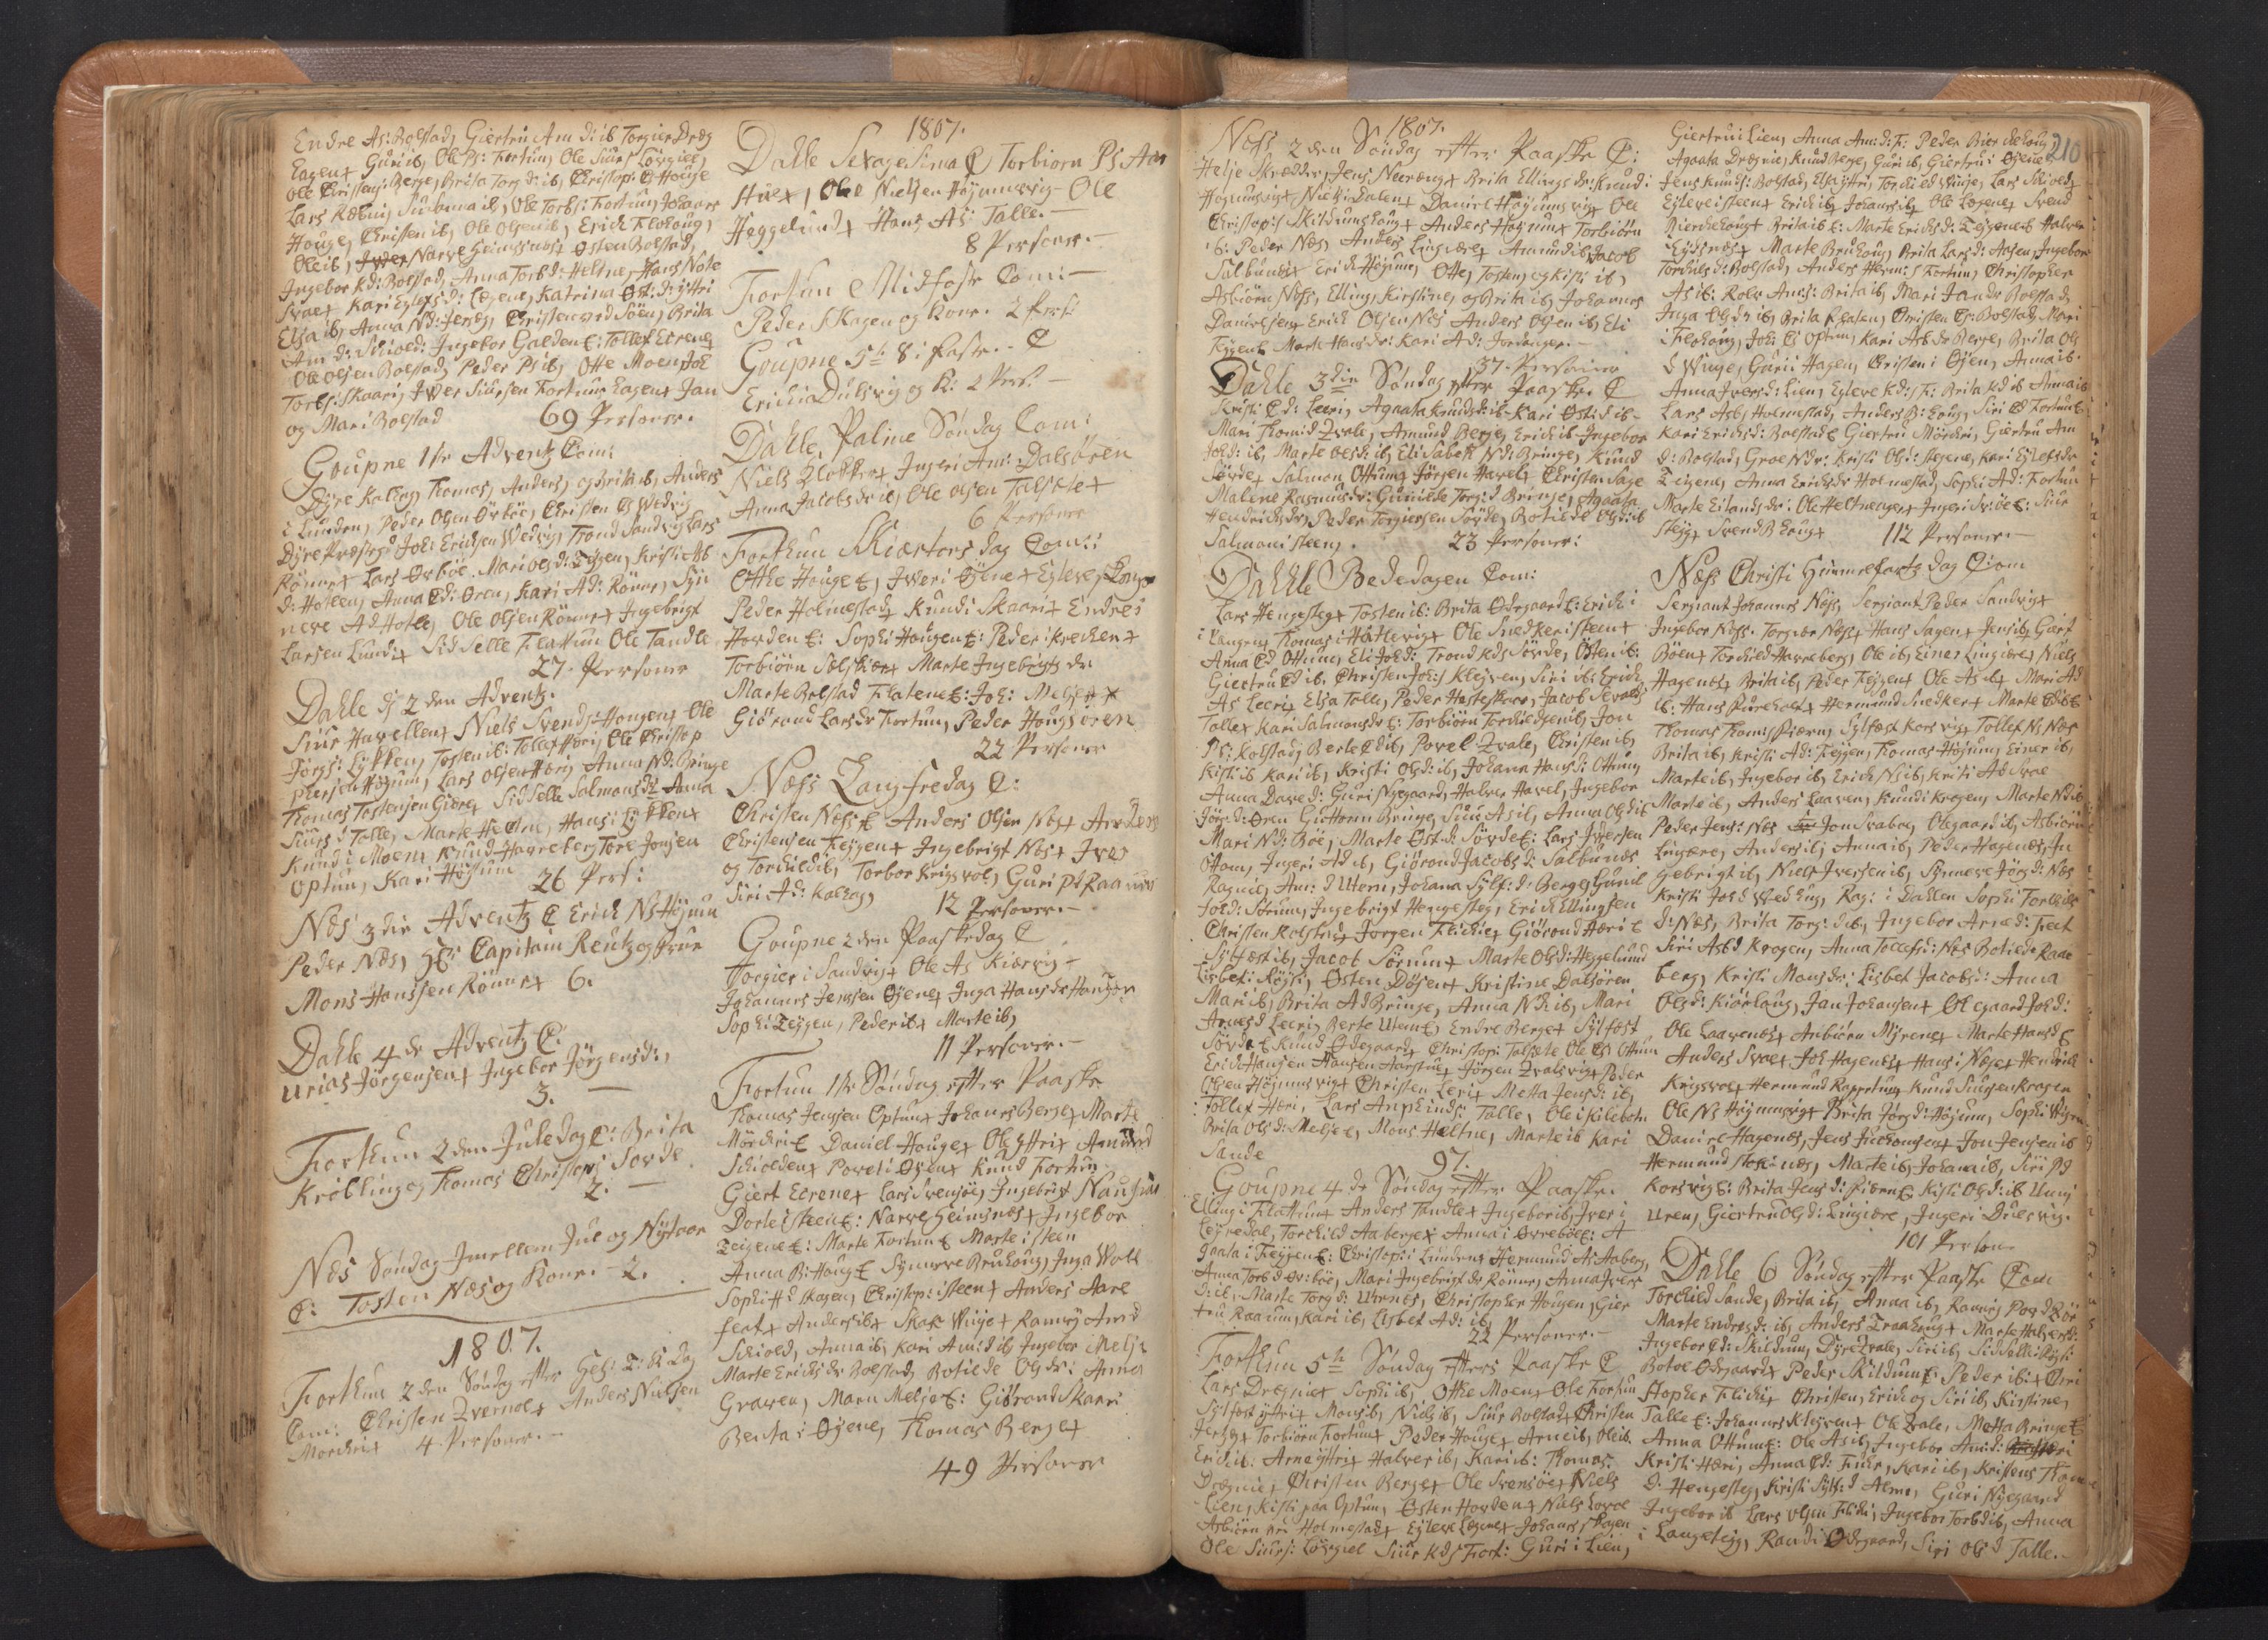 Endre As: Bolstad, Giertru Am d: ib Torgier Dræg
Eagen+ Guri ib, Ole Ps: Fortun, Ole Siurs Løvgiel,
Ole Christens: Berge, Brita Torg d: ib, Christop: O Houge
Lars Rebni, ib, Ole Torbs: Fortun, Johanes
Houge, Christen ib, Ole Olsen ib, Erich Flohoug,
Ole ib, Narve Heimsnes+ Østen Bolstad,
Ingebor K d: Bolstad, Anna Torb d: Heltne, Hans Nole
Svae+ Kari Eylefs d: Eegene, Katrina Øst: d: yttri
Elsa ib, Anna N d: Jerseg, Christen ved Søen, Brita
Am d: Schiold: Ingebor Galden E: Tollef Ecrene+
Ole Olsen Bolstad, Peder Ps ib, Otte Moen Joh
Torbs: Skaari, Iver Siursen Fortun Eagen+ Jan
og Mari Bolstad 69 Personer.
Goupne 1ste Advent Com:
Dyre Kalhag, Thomas, Anders, og Brit ib, Anders
i Lunden, Peder Olsen Ørbøe, Christen Cs Wedvig
Dyre Præstegd Joh: Erichsen Wedvig, Trond Sandvig Lars
Rønne+ Lars Ørbøe. Mari Ols d: Teigen, Kristi Ab
d: Hollen, Anna C d: Øren, Kari A d: Rønne, Syn
neve A d Holle, Ole Olsen Rønne+ Ingebrigt
Larsen Lund+ Sidselle Flattun Ole Tandle
27 Personer
Dahle dj 2den Adventz.
Siur Havellen+ Niels Svends: Hougen+ Ole
Jörgs: Lykken, Tosten ib: Tollef Høri, Ole Christop
phersen Høyum, Lars Olsen Høri, Anna N d: Bringe
Thomas Tostensen Giere+ Sidselle Salmons d: Anna
Siurs d Talle, Marte Helm, Hans i Lykken+
Knud i Moen+ Knud Havreberg Tore Jonsen
Optun, Kari Høyum 26 Pers:
Næs 3die Adventz C Erich Ns Høyum
Peder Næs, Hr: Capitain Reutz og Frue
Mons Hanssen Rønne+ 6.
Dahle 4de Adventz C:
Urias Jørgensen+ Ingebor Jørgensd:,
3.
Forthun 2den Juledag C: Brita
Krøbling og Thomas Christops: Sovde
2.
Næs Søndag Imellem Jul og Nytaar
C: Tosten Næs og Kone. 2.
1807.
Forthun 2den Søndag efter Hel: 3: K Dag
Com: Christen Kvernoe+ Anders Nielsen
Mordri+ 4 Personer.
1807.
Dahle Sexagesima C Torbiørn Ps Aar
Hue+, Ole Nielsen Høyumsvig - Ole
Heggelund+ Hans As: Talle.
8 Personer.
Forthun Midfaste Com:
Peder Skagen og Kone. 2 Pers:
Goupne 5te S i Faste. C
Erich i Dulsvig og K: 2 Pers:
Dahle, Palme Søndag Com:
Niels Klokker+ Ingeri Am: Dalsøren
Anna Jacobs dr ib, Ole Olsen Talsete+
6 Personer
Forthun Skiærtorsdag Com:
Otthe Houge E, Iver i Øyene+ Eyleve
Peder Holmestad+ Knud i Skaari+ Endre i
Hovden E: Sophi Hougen E: Peder i Krechen+
Torbiørn Sælshier+ Marte Ingebrigts dr
Marte Bolstad Flatene E: Joh: Melje++
Giørond Lars dr Fortun, Peder Hougsøren
22 Personer
Næss Langfredag C:
Christen Næss E Anders Olsen Næs+ Anders
Christensen Feigen+ Ingebrigt Næs+ Iver
og Torchild ib, Torbor Krigsvol, Guri P d Raaum
Siri A d: Kalhag, 12 Personer.
Goupne 2den Paaskedag C
Torgier i Sandvig+ Ole As Kiervig
Johannes Jenssen Øyene+ Inga Hans dr Hougøn
Sophi Teigen, Peder ib+ Marte ib,
11 Personer.
Fortun 1ste Søndag efter Paaske
Thomas Jensen Optun+ Johannes Berge+ Marte
Mørchri E Daniel Houge+ Ole yttri+ Amund
Schiolden+ Povel i Øyen+ Knud Fortun
Giert Ecrene+ Lars Svensøe, Ingebrigt
Dorte i Steen E: Narve Heimsnes+ Ingebor
Teigene E: Marte Fortun E Marte i Steen
Anna B: Houg E Synneve Bruhoug, Inga Woll
Sophi H d Skagen, Christop: i Steen+ Anders Aare
feet+ Anders ib+ Skak Winje+ Ranvey Am d
Schiold, Anna ib, Kari Am: d ib, Ingebor Melje
Marte Erichs dr Bolstad, Botilde Ols dr: Anna
Graven, Mari Melje E: Giørond Skaari
Benta i Øyene, Thomas Berge+
49 Personer
1807.
Næss 2den Søndag efter Paaske C:
Helje Skredder, Jens Neerenge+ Brita Ellings dr: Knud i
Høyumsvig+ Niels i Dalen+ Daniel Høyumsvig+ Ole
Christops: Skildumshoug+ Anders Høyum+ Torbiørn
ib: Peder Næs, Anders Lingjære+ Amund ib Jacob
Salbunes+ Erich Høyum, Otte, Tosten, og Kisti ib,
Asbiørn Næss, Elling, Kirstine, og Brita ib, Johannes
Danielsen+ Erich Olsen Næs Anders Olsen ib, Eli
Feigen+ Marte Hans dr: Kari A d: Jordanger.
37 Personer
Dahle 3die Søndag efter Paaske C
Kristi C d: Leeri, Agaata Knuds d: ib Kari Øst: d ib
Mari Thom: d Kvale, Amund Berge, Erich ib Ingebor
Joh d: ib, Marte Ols d: ib, Elisabeth N d: Bringe, Knud
Sövde+ Salmon Ottum+ Jørgen Havel+ Christen Sage
Malene Rasmus dr: Gunilde Torg: d Bringe, Agaata
Hendrichs dr, Peder Torgiersen Søvde, Botilde Ols d: ib
Salmon i Steen, 23 Personer:
Dahle Bededagen Com:
Lars Hengesteg+ Tosten ib: Brita Ødegaard E: Erich i
i Langen+ Thomas i Hatlevig+ Ole Snedker i Steen+
Anna C d Ottum, Eli Joh d: Trond K ds Søvde, Østen ib:
Giertru C d ib. Christen Joh: s Kleiven, Siri ib, Erich
As Leeri, Elsa Talle, Peder Hesteskoe, Jacob
Talle+ Kari Salmons dr E: Torbiørn Torchildsen ib, Jon
Ps: Kolstad, Berte C d ib, Povel Kvale, Christen ib,
Kisti ib Kari ib, Kristi Ols d: ib, Johana Hans d: Ottum
Anna Dave d: Guri Nygaard, Halvor Havel, Ingebor
Jørg: d: Øren Guttorm Bringe, Siur As ib, Anna Ols d ib
Mari N d: Bøe, Marte Øst d: Søvde E: Lars Iversen
Ottum, Ingeri A d ib, Giørond Jacobs d: Salbunes
Ragnil, Am: d Utern, Johana Sylf: d: Berge, Gunil
Joh d: Sørum, Ingebrigt Hengesteg, Erich Ellingsen
Christen Kolstad, Jorgen Flichi+ Giørond Høri E
Sylfæst ib, Jacob Sørum+ Marte Ols d: Heggelund
Lisbet: Røysi, Østen Døsen+ Kristine Dalsøren
Mari ib, Brita A d Bringe, Anna N d: ib, Mari
Arnes d Leeri, Berte Uten E, Endre Berge+ Sylfest
Søvde E Knud Ødegaard+ Christop: Talsete Ole Cs Ottum
Erich Hansen Hansen Harstue+ Jørgen Kvalsvig+ Peder
Olsen Høyumsvig+ Christen Leri+ Metta Jens d: ib,
Tollef Høri, Lars Anphinds: Talle, Ole i Kilebotn
Brita Ols d: Melje E, Mons Heltne, Marte ib Kari
Sande 97.
Goupne 4de Søndag efter Paaske.
Elling i Flattun+ Anders Tandle+ Ingebor ib, Iver i
Leyredal, Torchild Aaberge+ Anna i Ørrebøe E: A
gaata i Feigen E: Christop: i Lunden+ Hermund As Aaberg,
Anna Torb d Ørbøe, Mari Ingebrigt dr Rønne, Anna Iver
d: ib, Marte Torg d: Uhrnes, Christopher Hougen, Gier
tru Raaum, Kari ib, Lisbet A d: ib,
22 Personer.
Forthun 5te Søndag efter Paaske C
Lars Drægnie+ Sophi ib, Otthe Moen+ Ole Fortun
Sylfest yttri+ Mons ib, Niels ib, Siur Bolstad+ Christen
Jerseg+ Torbiørn Fortun+ Peder Houge+ Arne ib, Ole ib.
Erich ib: Arne yttri+ Halvor ib, Kari ib: Thomas
Drægnie+ Christen Berge+ Ole Svensøe+ Niels
Lien, Kisti paa Optun, Østen Hovden+ Niels Hovde
Asbiørn Holmestad+ Eyleve Eegene+ Johanes Skagen
Ole Siurs: Løvgiel Siur K ds Fort: Guri i Lien,
210
Giertru i Lien, Anna Am: d: F: Peder Bierchehoug
Agaata Drægnie, Knud Berge, Guri ib, Giertru i Øyene
Jens Knuds: Bolstad, Elsa yttri, Torchild Winje, Lars Schiold+
Eyleve i Steen+ Erich ib+ Johanes ib+ Ole Eegene+ Svend
Bierchehoug+ Brita ib E: Marte Erichs d: Teigene E Halvor
Eydsnæs+ Marte Bruhoug, Brita Lars d: Aasen, Ingebor
Torchils d: Bolstad, Anders Herm: s Fortun, Christopher
As ib: Rolv Ams: Brita ib, Mari Jan dr Bolstad,
Inga Ols d: ib, Brita Flaten, Christen Cs: Bolstad, Mari
Flohoug, Joh: Cs Optun, Kari Arb dr Berge, Brita Ols
d Winje, Guri i Hagen, Christen i Øyen, Anna ib.
Anna Ivers d: Lien, Eyleve K d: F: Brita K d ib Anna ib
Lars Asb: Holmestad, Anders B: houg, Siri C d Fortun E
Kari Erichs d: Bolstad E Giertru Mørchri, Giertru Am
d: Bolstad, Groe N dr: Kristi Ols d: Eegene, Kari Eylefs dr
Teigene, Anna Erichs dr Holmestad, Sophi A d: Fortun
Marte Eilands dr: Ole Heltnenge+ Ingeri E: Siur
Steig, Svend B houg+ 112 Personer.
Næss Christi Himmelfarts Dag Com
Sergiant Johannes Næss, Sergiant Peder Sandvig+
Ingebor Næss. Torgier Næs+ Hans Sagen+ Jens ib, Giert
Bøen+ Torchild Havreberg, Ole ib, Einer Lingjære, Niels
Hagenes+ Brita ib, Peder Feigen+ Ole As ib+ Mari A d
ib: Hans Furehoe+ Hermund Snedker+ Marte C d ib E
Thomas Thoms: Fiæren, Sylfæst Korsvig+ Tollef Ns Næs
Brita ib, Kristi A d: Feigen, Thomas Høyum, Einer ib,
Marte ib, Ingebor ib, Erich Ns ib, Kristi A d Svae
Marte ib, Anders Laaven, Knud i Krogen, Marte N d ib
Peder Jens: Næs Jon Svaberg Olegaard ib, Asbiørn
Lingjære, Anders ib, Anna ib, Peder Hagenæs, In
gebrigt ib, Niels Iversen ib, Synneve Jørg d: Næs
Kristi Joh d Wedhug, Rag: i Dahlen Sophi Torchils
d: Næs, Brita Torg: d ib, Ingebor Arne d: Feet
Siri Asb d Krogen, Anna Tollefs d: Næs Botilde Raae
berg, Kristi Mons dr: Lisbet Jacobs d: Anna
Ols d: Kiørlaug, Jan Johansen+ Olegaard Joh d:
Ole Laavenes+ Anbiørn Myrene+ Marte Hans d E
Anders Svae+ Joh Hagenes+ Hans i Næge+ Hendrich
Krigsvol+ Hermund Kapretun+ Knud Siursen Krogen
Ole Ns Høyumsvig+ Brita Jørg d: Høyum, Sophi Wigen
Daniel Hagenes, Jens Jon Jensen ib
Hermund næs, Marte ib, Johana ib, Siri P d
Korsvig E: Brita Jens d: Fiæren E Kisti Ols d: ib Unni
Uren, Giertru Ols d: Lingjære, Ingeri Dulsvig.
101 Person
Dahle 6 Søndag efter Paaske Com
Torchild Sande, Brita ib, Anna ib, Ranvey Pov d Kør
Marte Endres d: ib, Anders Traahaug+ Marte Halvers d:
Ingebor C d: Skildum, Dyre Kvale, Siri ib, Sidselle Røysi
Botol Ødegaard+ Peder Skildum E: Peder ib:+ Chri
stopher Flichi+ Christen, Erich og Siri ib, Kirstine,
Talle E: Johannes Kleiven+ Ole Kvale, Metta Bringe E
Anna Ottum E: Ole As ib, Ingebor Am: d:
Kristi Høri, Anna C d: Fuhr, Kari ib, Kristens Thom
d: Hengesteg, Kristi Sylf: d Alme, Guri Nygaard
Ingebor ib Lars Olsen Flichi, Ingebor Torb d ib, Anna
i Langeteig, Randi Ødegaard, Siri Ols d Talle.